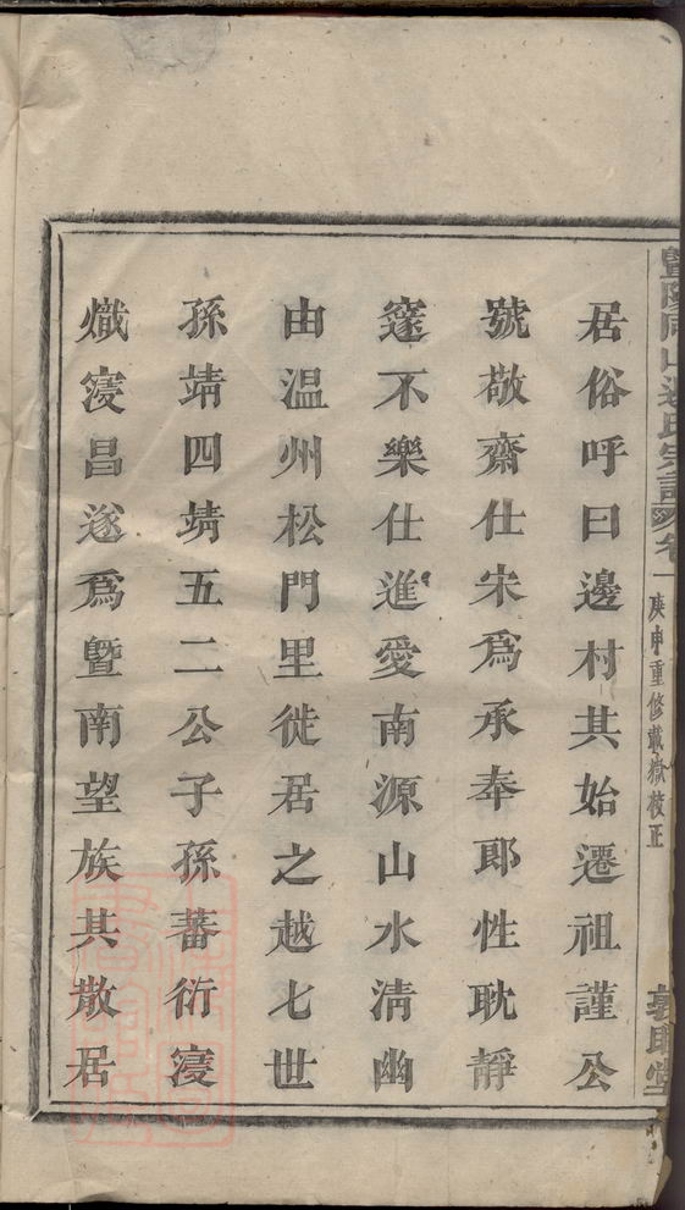 暨陽同山邊氏宗譜卷一 庚申重修載嶽校正
居俗呼曰邊村其始遷祖謹公
號敬齋仕宋爲承奉郎性耽靜
窪不樂仕進愛南源山水淸幽
由温州松門里徙居之越七世
孫靖四靖五二公子孫蕃衍寖
熾寖昌遂爲曁南望族其散居